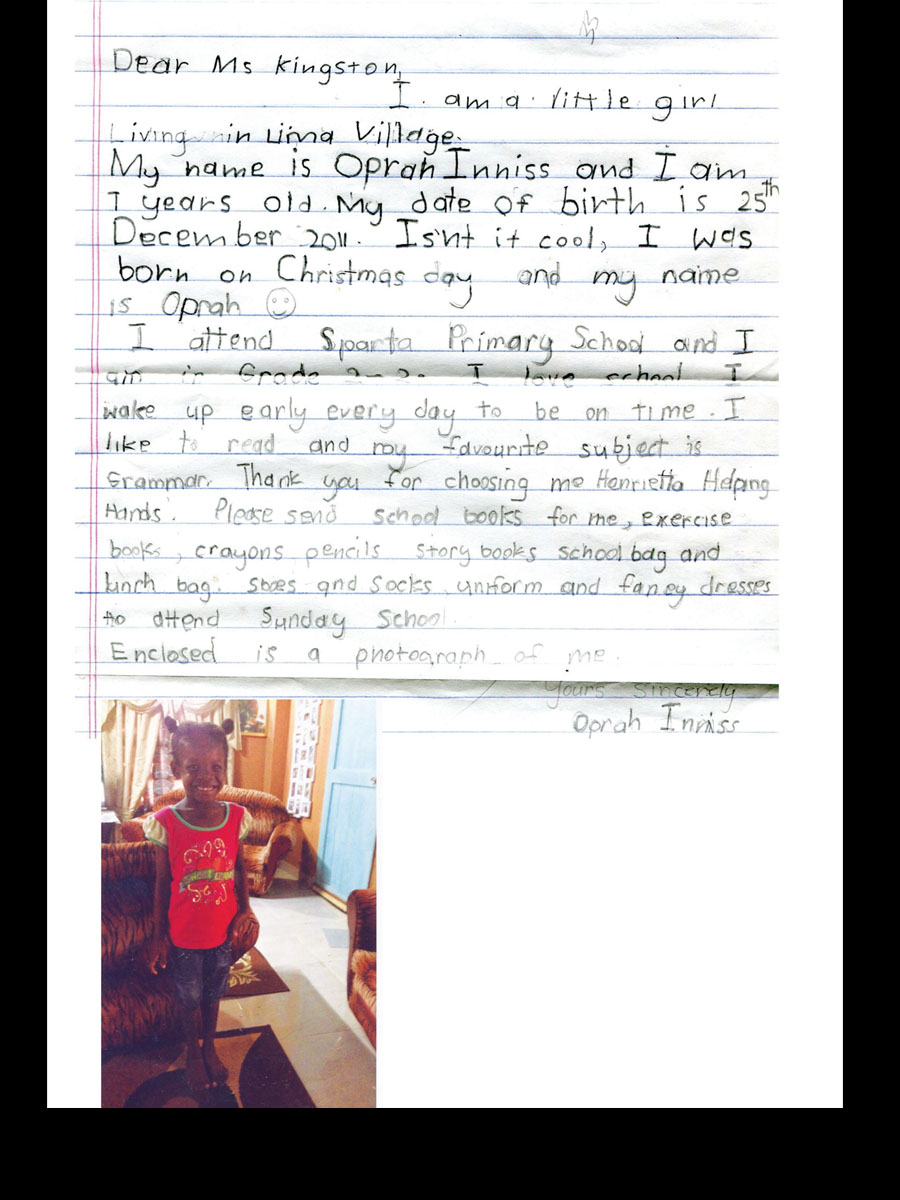 Dear Ms Kingston,
I am a little girl
Living in Lima Village.
My name is Oprah Inniss and I am
7 years old. My date of birth is 25th
December 2011. Is'nt it cool, I was
born on Christmas day and my name
is Oprah ☺
I attend Sparta Primary School and I
am in Grade I love school I
wake up early every day to be on time. I
like to read and my favourite subject is
Grammar. Thank you for choosing me Henrietta Helping
Hands. Please send school books for me, exercise
books, crayons pencils story books school bag and
lunch bag. shoes and socks uniform and fancy dresses
to attend Sunday School.
Enclosed is a photograph of me.
Yours Sincerely
Oprah Inniss